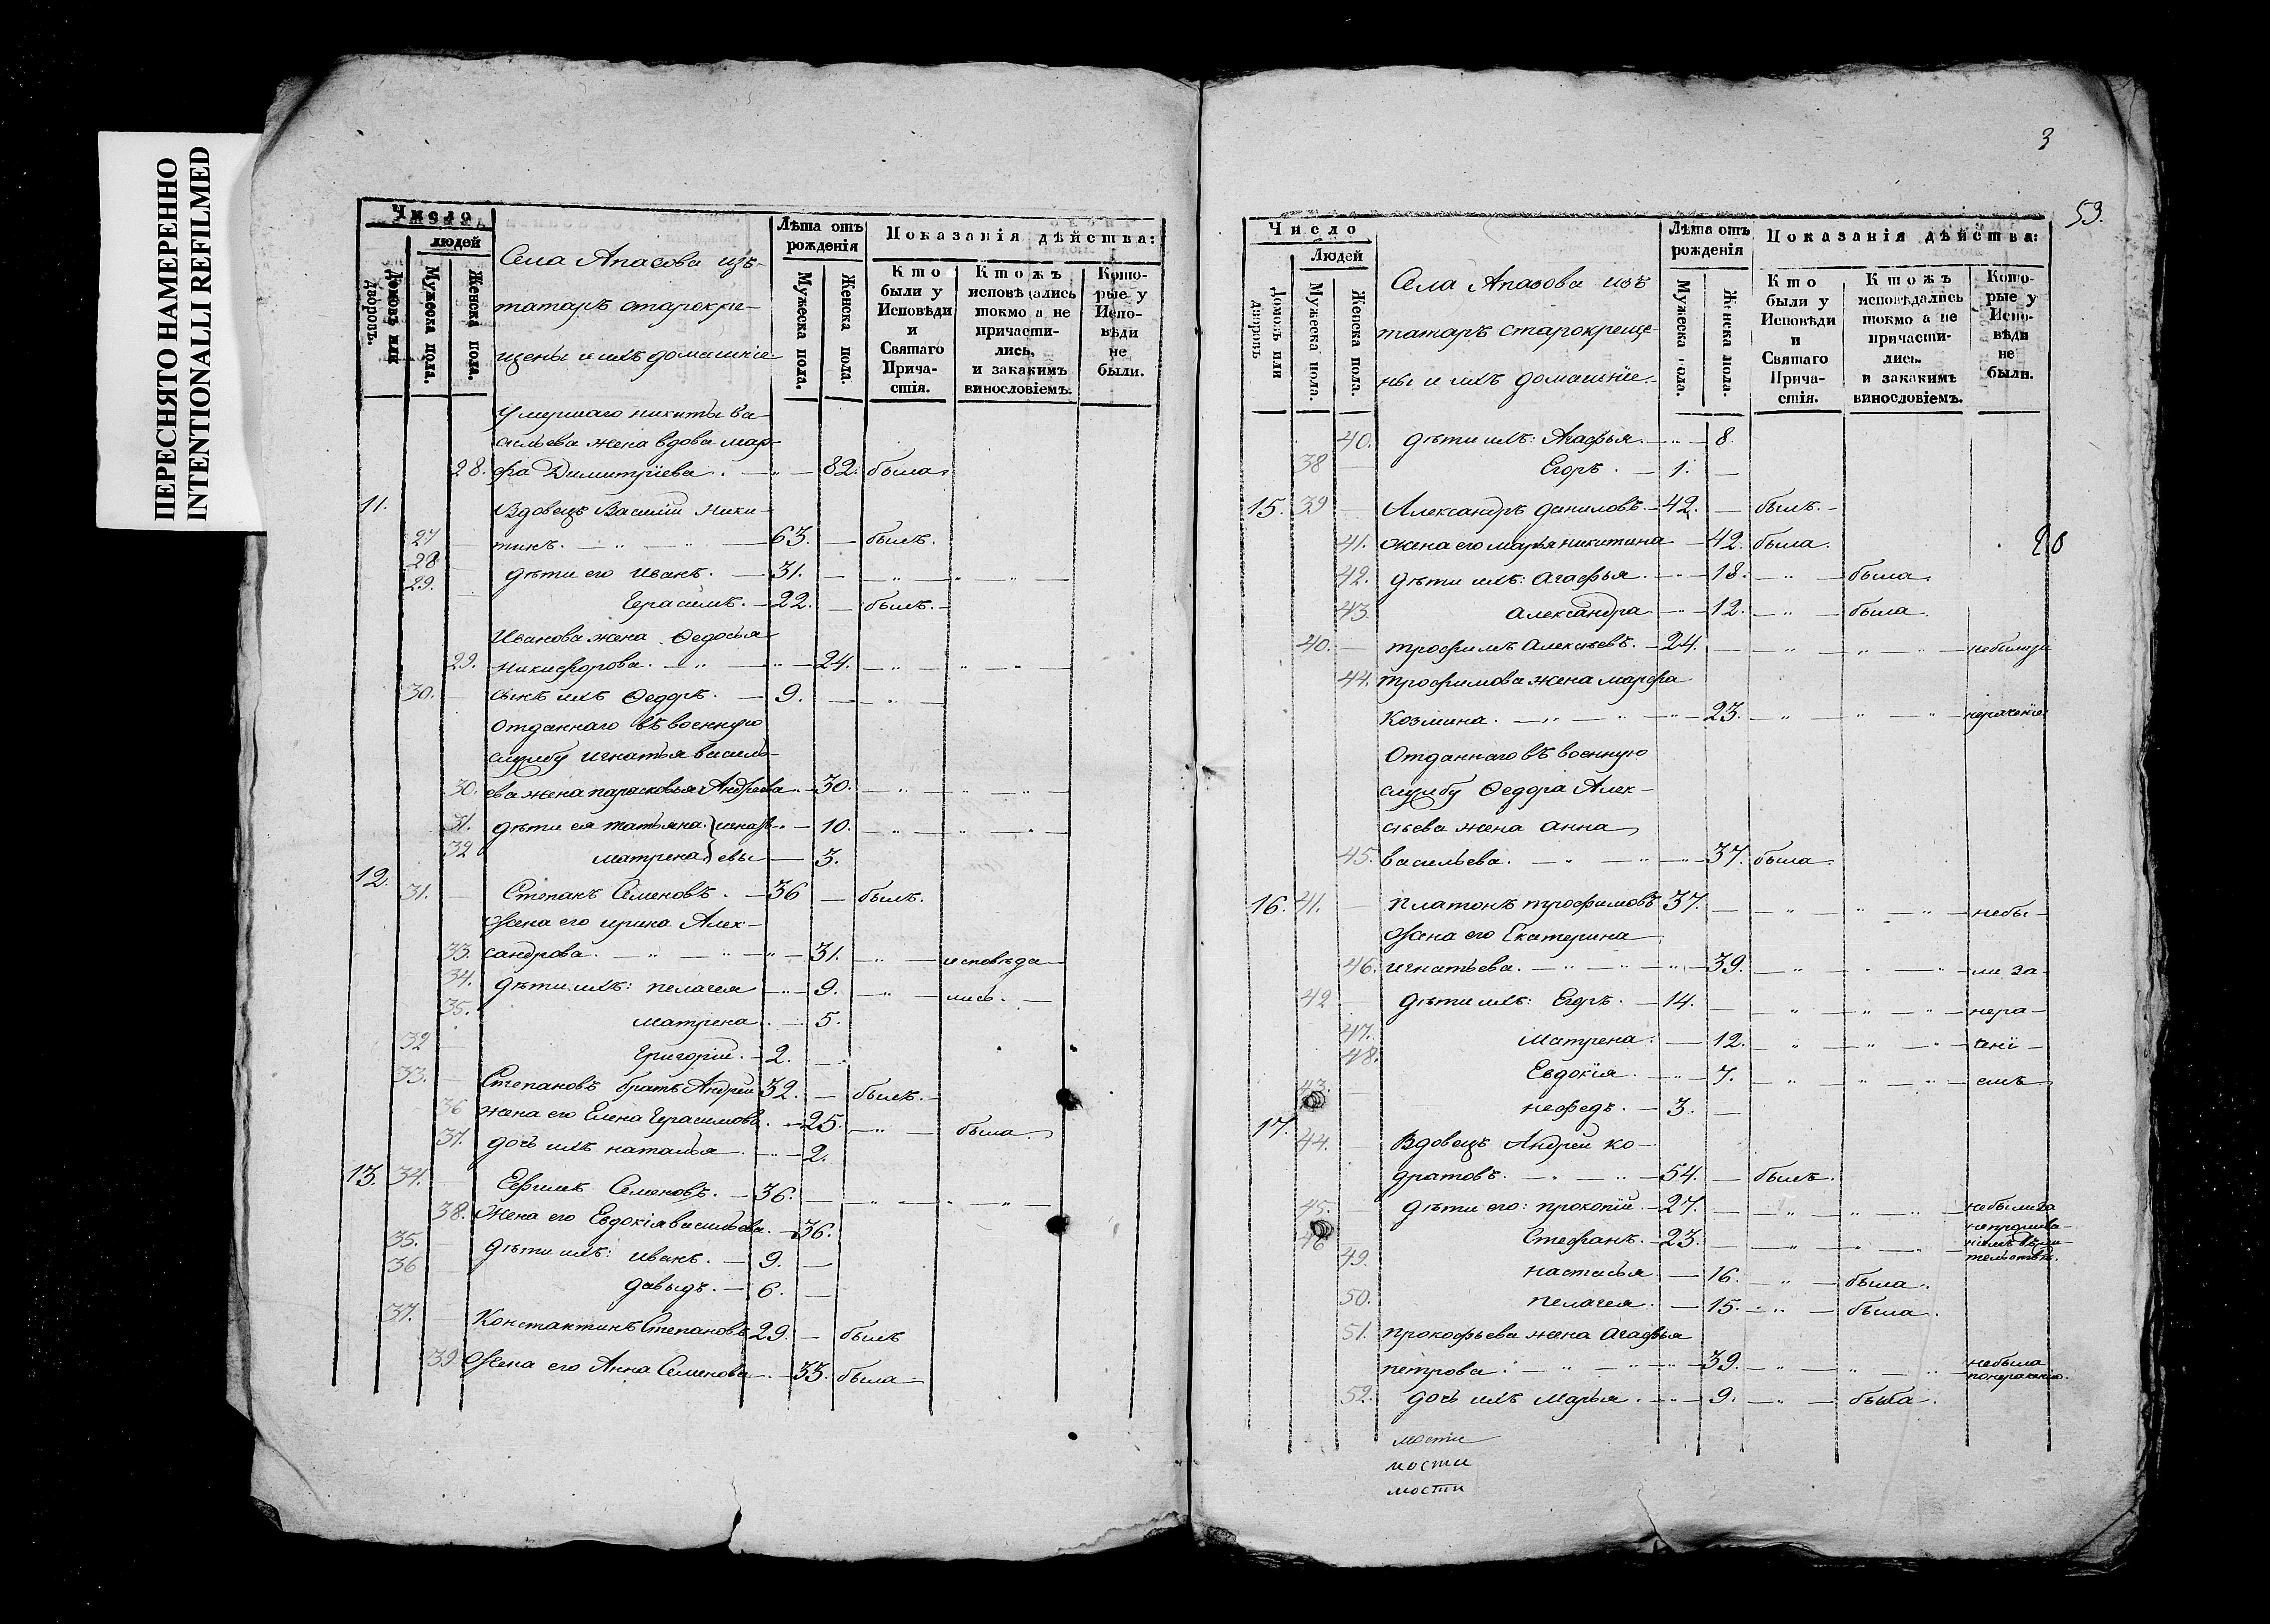 ПЕРЕСНЯТО НАМЕРЕННО
INTENTIONALLI REFILMED
Число
людей
Домовъ или дворовъ.
Мужеска пола.
Женска пола.
Села Апазова изъ
татаръ старокре-
щены и ихъ домашніе
Лѣта отъ рожденія
Мужеска пола.
Женска пола.
Показанія дѣйства:
Кто были у Исповѣди и Святаго Прича-стія.
Ктожъ исповѣдались токмо а не причасти-лись, и закакимъ винословіемъ.
Кото-рые у Испо-вѣди не были.
Умершаго никиты ва-
сильева жена вдова мар-
28. фа Димитріева. — 82. была
11. Вдовецъ Василій Ники-
27 тинъ. — 63. — былъ.
28 дѣти его Иванъ. — 31. —
29. Герасимъ. — 22. — былъ. —
Иванова жена Ѳедосья
29. никифорова. — 24.
30. сынъ ихъ Ѳедоръ. — 9. —
Отданнаго въ военную
службу игнатья василь-
30. ева жена парасковья Андреева. — 30.
31. дѣти ея татьяна } игнать- — 10.
32 матрена } евы — 3.
12. 31. — Степанъ Семеновъ. — 36 — былъ.
Жена его ирина Алек-
33. сандрова. — 31. — исповѣда-
34. дѣти ихъ: пелагея — 9. — лись. —
35. матрена. — 5.
32 — Григорій. — 2. —
33. — Степановъ братъ Андрей 32. — былъ. —
36 жена его Елена Герасимова. — 25. — была.
37. дочь ихъ наталья — 2.
13. 34. — Ефимъ Семеновъ. — 36. —
38. Жена его Евдокія васильева. — 36.
35. — дѣти ихъ: иванъ. — 9. —
36 — давыдъ. — 6. —
37. — Константинъ Степановъ 29. — былъ
39 Жена его Анна Семенова — 33. была —
3
59.
Число
Людей
Домовъ или дворовъ
Мужеска пола.
Женска пола.
Села Апазова изъ
татаръ старокреще-
ны и ихъ домашніе.
Лѣта отъ рожденія
Мужеска пола.
Женска пола.
Показанія дѣйства:
Кто были у Исповѣди и Святаго Прича-стія.
Ктожъ исповѣдались токмо а не причасти-лись. и закакимъ винословіемъ.
Кото-рые у Испо-вѣди не были.
40. дѣти ихъ: Агафья. — 8.
38 — Егоръ. — 1. —
15. 39 — Александръ даниловъ. — 42. — былъ. —
41. жена его марья никитина — 42. была.
42. дѣти ихъ: агафья. — 18. — была.
43. александра — 12. — была.
40. — трофимъ алексѣевъ. — 24. — небылиза
44. трофимова жена марфа
Козмина. — 23. — нераченіе
Отданнаго въ военную
службу Ѳедора Алек-
сѣева жена анна
45. васильева. — 37. была.
16. 41. — платонъ трофимовъ 37. — небы-
Жена его Екатерина
46. игнатьева. — 39. — ли за-
42 — дѣти ихъ: Егоръ. — 14. — нера-
47. Матрена. — 12. — чені-
48. Евдокія. — 7. — емъ
43. — нефедъ. — 3. —
17. 44. — Вдовецъ Андрей ко-
дратовъ. — 54. — былъ.
45. — дѣти его: прокопій. — 27. — небылиза
46 Стефанъ. — 23.
49. настасья — 16. — была.
50. пелагея. — 15. — была.
51. прокофьева жена агафья
петрова. — 39. — небыла
понераченію.
52. дочь ихъ марья. — 9. — была.
мости
мости
мости